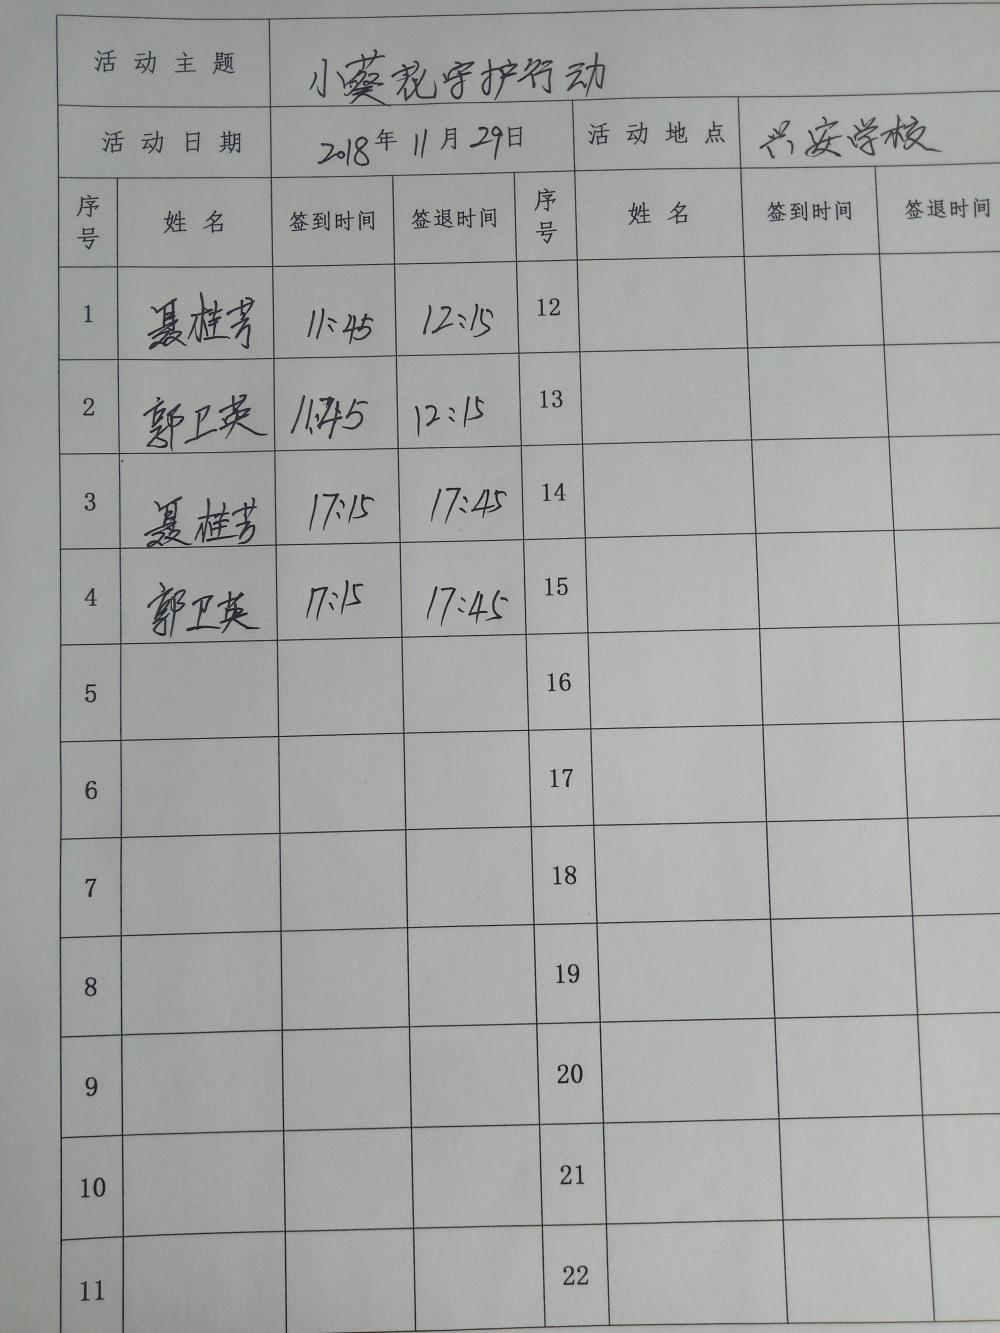 活动主题 小葵花守护行动
活动日期 2018年11月29日 活动地点 兴安学校
序号 姓名 签到时间 签退时间 序号 姓名 签到时间 签退时间
1 聂桂芳 11:45 12:15 12
2 郭卫英 11:45 12:15 13
3 聂桂芳 17:15 17:45 14
4 郭卫英 17:15 17:45 15
5 16
6 17
7 18
8 19
9 20
10 21
11 22